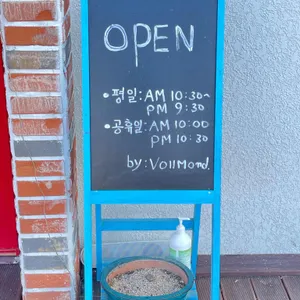 OPEN
• 평일: AM 10:30~
PM 9:30
• 공휴일: AM 10:00
PM 10:30
by: Vollmond.